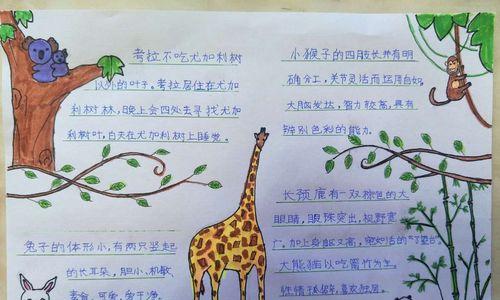 考拉不吃尤加利树
以外的叶子。考拉居住在尤加
利树林，晚上会四处去寻找尤加
利树叶，白天在尤加利树上睡觉。
小猴子的四肢长并有明
确分工，关节灵活而运用自如，
大脑发达，智力较高，具有
辨别色彩的能力。
兔子的体形小，有两只竖起
的长耳朵，胆小、机敏
素食、可爱、爱干净。
长颈鹿有一双棕色的大
眼睛，眼珠突出，视野宽
广，加上身躯又高，宛如活的“了望台”
大熊猫以吃箭竹为生，
性情孤僻，喜欢独居。